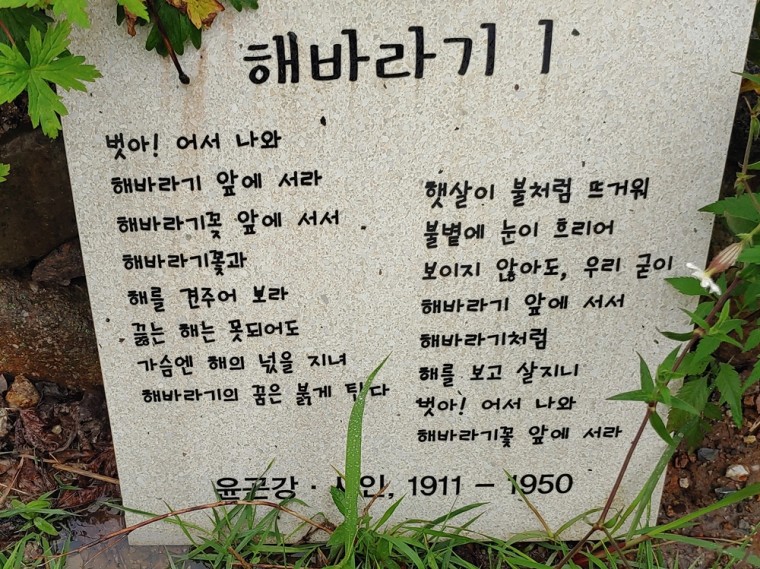 해바라기 1
벗아! 어서 나와
해바라기 앞에 서라
해바라기꽃 앞에 서서
해바라기꽃과
해를 견주어 보라
끓는 해는 못되어도
가슴엔 해의 넋을 지녀
해바라기의 꿈은 붉게 탄다
햇살이 불처럼 뜨거워
불볕에 눈이 흐리어
보이지 않아도, 우리 굳이
해바라기 앞에 서서
해바라기처럼
해를 보고 살지니
벗아! 어서 나와
해바라기꽃 앞에 서라
윤곤강 · 시인, 1911 – 1950